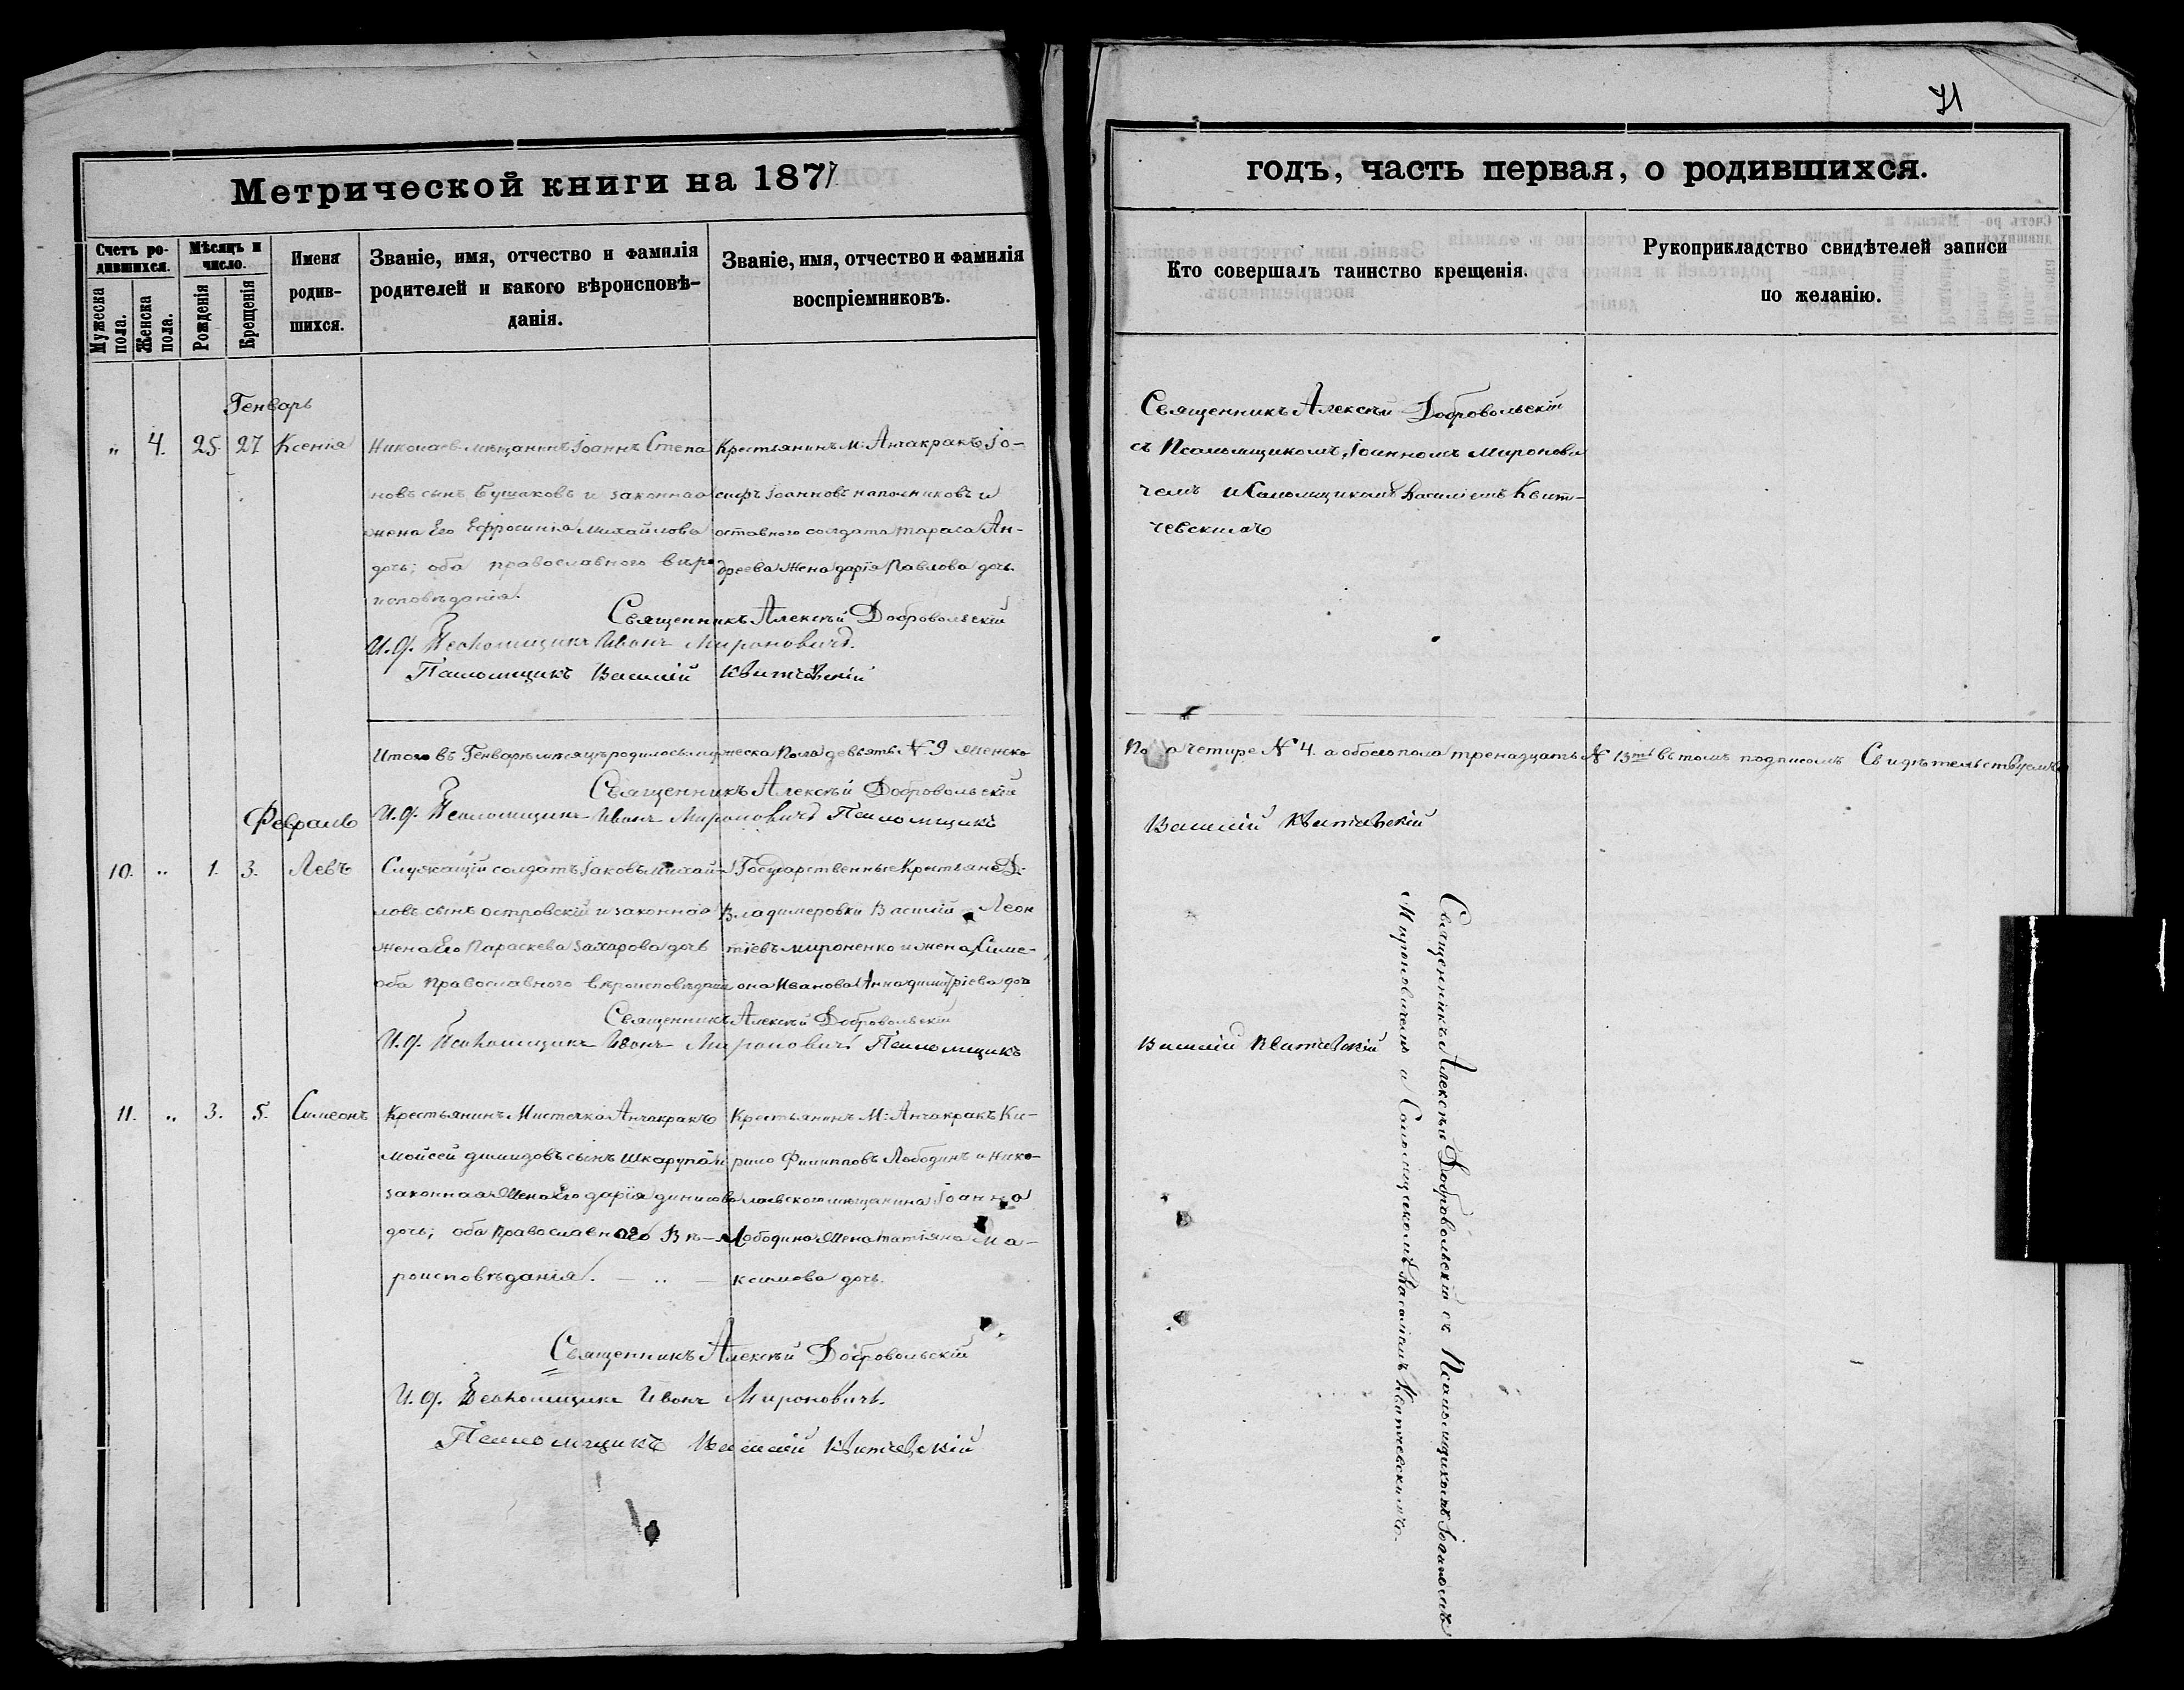 71
Метрической книги на 1871
годъ, часть первая, о родившихся.
Счетъ родившихся.
Мужеска пола.
Женска пола.
Мѣсяцъ и число.
Рожденія
Крещенія
Имена родившихся.
Званіе, имя, отчество и фамилія родителей и какого вѣроисповѣданія.
Званіе, имя, отчество и фамилія воспріемниковъ.
Кто совершалъ таинство крещенія.
Рукоприкладство свидѣтелей записи по желанію.
Генварь
" 4. 25. 27 Ксенія
Николаев. мещанинъ Іоаннъ Степа
новъ сынъ Бушаковъ и законная
жена Его Ефросинія Михайлова
дочь; оба православного вѣро
исповѣданія.
Крестьянинъ М: Анчакракъ Іо-
сифъ Іоанновъ наполниковъ и
оставного солдата Тараса Ан-
дреева жена дарія Павлова дочь.
Священникъ Алексѣй Добровольскій
съ Псаломщикомъ Іоанномъ Миронови
чемъ и Саломщикомъ Василіемъ Квит-
чевскимъ
Священникъ Алексѣй Добровольскій
И. д. Псаломщика Иванъ Мироновичъ.
Псаломщикъ Василій Квитчевскій
Итого въ Генварѣ месяцѣ родилось мужеска Пола девять № 9 женско
По а четире № 4. а обоего пола тренадцать № 13ть въ томъ подписомъ Свидѣтельствуемъ
Священникъ Алексѣй Добровольскій
И. д. Псаломщика Иванъ Мироновичъ Псаломщикъ
Василій Квитчевскій
Февраль
10. " 1. 3. Левъ
Служащій солдатъ Іаковъ Михай-
ловъ сынъ островскій и законная
жена Его Параскева Захарова дочь
оба Православного вѣроисповѣданія
Государственные Крестьяне Д.
Владимеровки Василій Леон
тіевъ мироненко и жена Симе-
она Иванова Анна димитріева доч
Священникъ Алексѣй Добровольскій
И. д. Псаломщика Иванъ Мироновичъ Псаломщикъ
Василій Квитчевскій
11. " 3. 5. Симеонъ
Крестьянинъ Мистечка Анчакракъ
Мойсей димидовъ сынъ Шкарупа и
законная жена Его дарія динисова
дочь; оба Православного Вѣ-
роисповѣданія.
Крестьянинъ М: Анчакракъ Ки-
рило Филипповъ Лободинъ и Нико-
лаевского мещанина Іоанна
Лободина жена татіяна Ма-
ксимова дочь.
Священникъ Алексѣй Добровольскій
И. д. Псаломщика Иванъ Мироновичъ.
Псаломщикъ Василій Квитчевскій
Священникъ Алексѣй Добровольскій съ Псаломщикомъ Іоанномъ
Мироновичемъ и Саломщекомъ Василіемъ Квитчевскимъ.